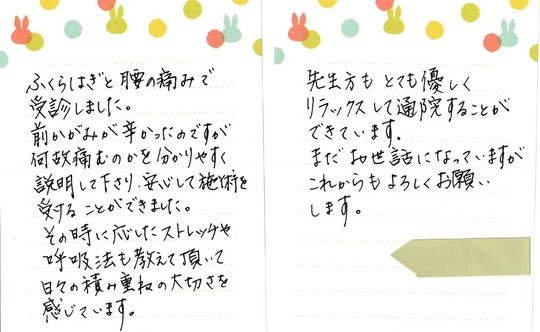 ふくらはぎと腰の痛みで
受診しました。
前かがみが辛かったのですが
何故痛むのかを分かりやすく
説明して下さり、安心して施術を
受けることができました。
その時に応じたストレッチや
呼吸法も教えて頂いて
日々の積み重ねの大切さを
感じています。
先生方も とても優しく
リラックスして通院することが
できています。
まだお世話になっていますが
これからもよろしくお願い
します。